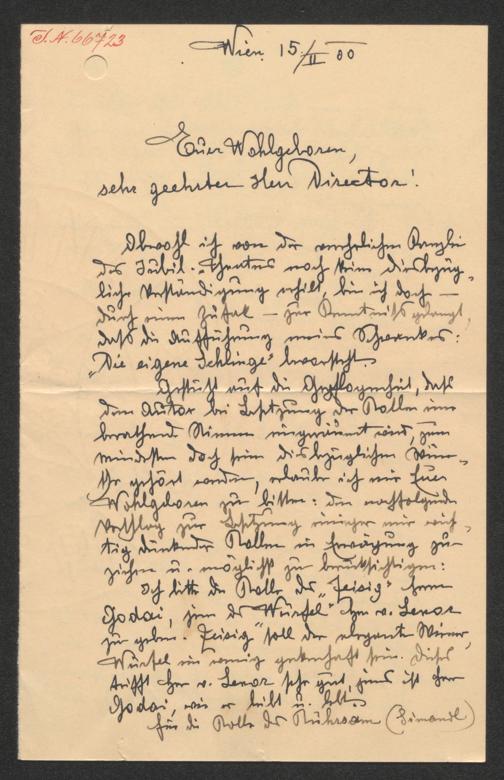 I.N. 66723
Wien. 15./II 00
Euer Wohlgeboren,
sehr geehrter Herr Director!
Obwohl ich von der verehrlichen Kanzlei
des Jubil.-Theaters noch keine diesbezüg-
liche Verständigung erhielt, bin ich doch —
durch einen Zufall — zur Kenntniß gelangt,
daß die Aufführung meines Schwankes:
"Die eigene Schlinge" bevorsteht.
Gestützt auf die Gepflogenheit, daß
dem Autor bei Besetzung der Rollen eine
berathende Stimme eingeräumt wird, zum
mindesten doch seine diesbezüglichen Wün-
sche gehört werden, erlaube ich mir Euer
Wohlgeboren zu bitten: den nachfolgenden
Vorschlag zur Besetzung einiger mir wich-
tig dünkender Rollen in Erwägung zu
ziehen u. möglichst zu berücksichtigen:
Ich bitte die Rolle des "Zeisig" Herrn
Godai, jene des "Würfel" Hrn v. Lenor
zu geben. "Zeisig" soll der elegante Wiener,
Würfel ein wenig geckenhaft sein. Dieses
trifft Herr v. Lenor sehr gut, jenes ist Herr
Godai, wie er leibt u. lebt.
Für die Rolle des Rührsam (Simandl)